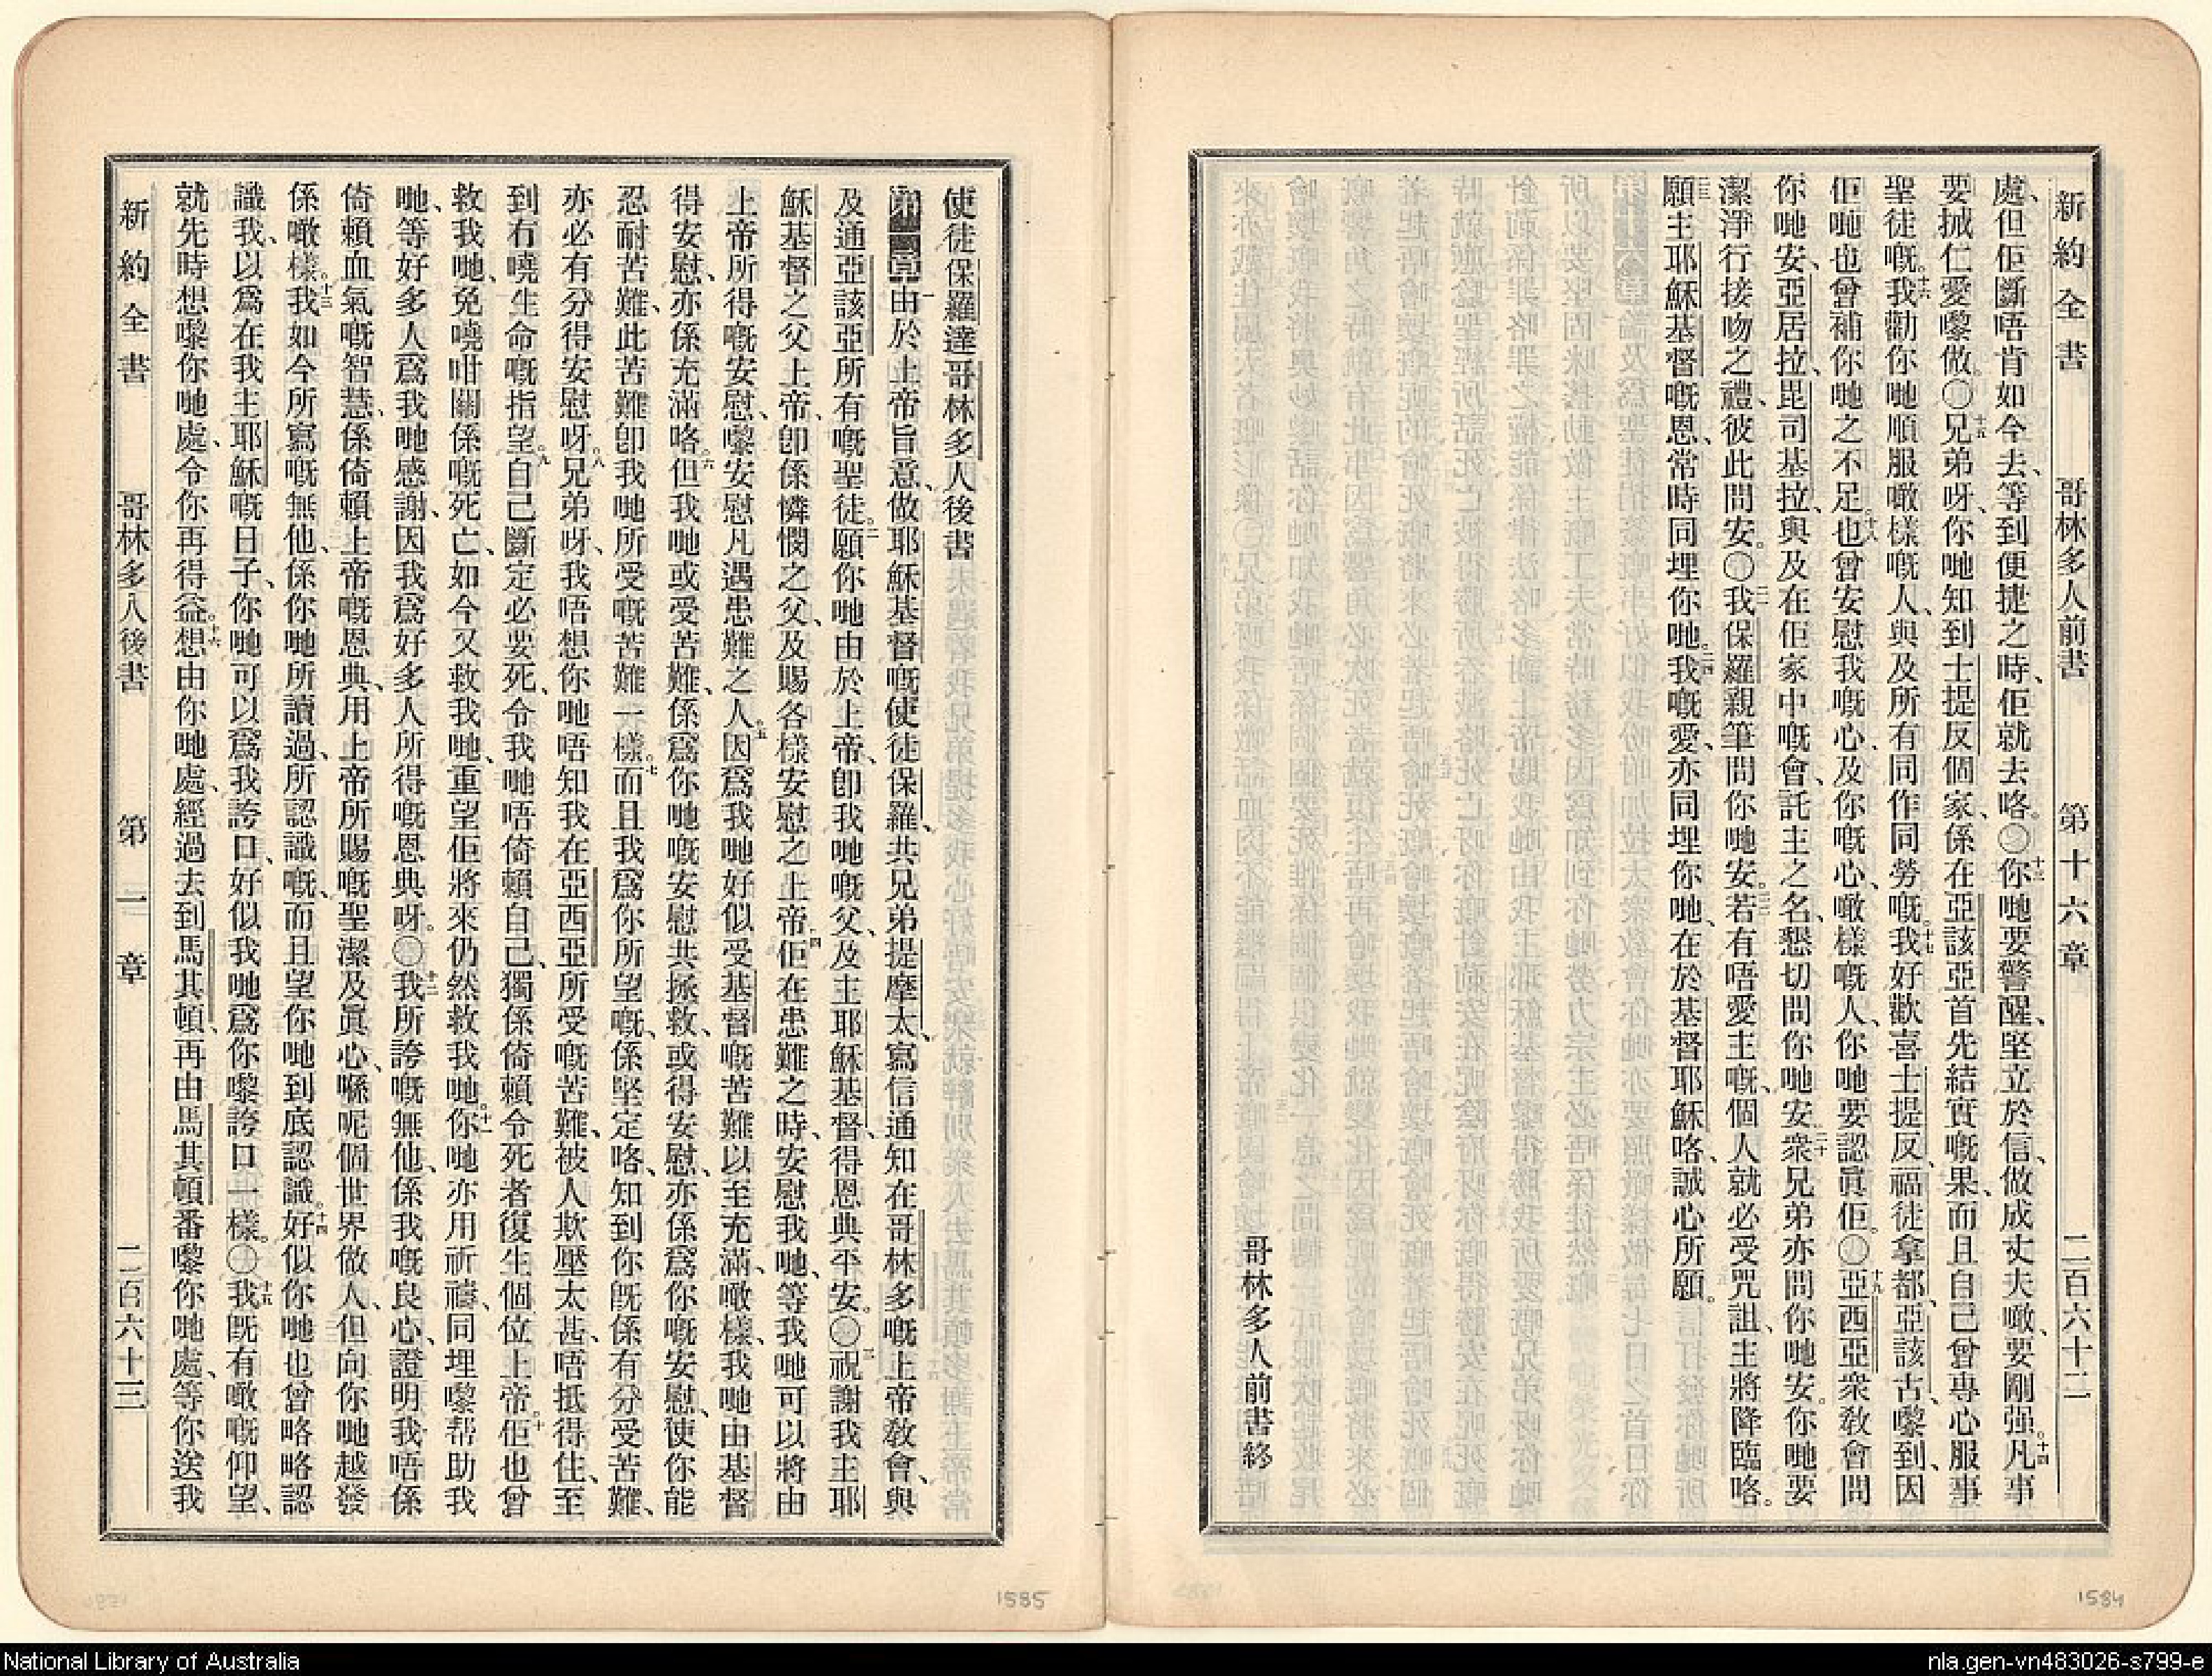 新約全書 哥林多人前書 第十六章 二百六十二
處、但佢斷唔肯如今去、等到便捷之時、佢就去咯。〇十三你哋要警醒、堅立於信、做成丈夫噉、要剛强。十四凡事
要搣仁愛嚟做。〇十五兄弟呀、你哋知到士提反個家、係在亞該亞首先結實嘅果、而且自己曾專心服事
聖徒嘅。十六我勸你哋順服噉樣嘅人、與及所有同作同勞嘅。十七我好歡喜士提反、福徒拿都、亞該古嚟到、因
佢哋也曾補你哋之不足。十八也曾安慰我嘅心、及你嘅心、噉樣嘅人、你哋要認眞佢。〇十九亞西亞衆敎會問
你哋安、亞居拉、毘司基拉、與及在佢家中嘅會、託主之名、懇切問你哋安。二十衆兄弟亦問你哋安。你哋要
潔淨行接吻之禮、彼此問安。〇二一我保羅親筆問你哋安。二二若有唔愛主嘅、個人就必受咒詛、主將降臨咯。
二三願主耶穌基督嘅恩、常時同埋你哋。二四我嘅愛、亦同埋你哋、在於基督耶穌咯、誠心所願。
哥林多人前書終
使徒保羅達哥林多人後書
第一章一由於上帝旨意、做耶穌基督嘅使徒保羅、共兄弟提摩太、寫信通知在哥林多嘅上帝敎會、與
及通亞該亞所有嘅聖徒。二願你哋由於上帝、卽我哋嘅父、及主耶穌基督、得恩典平安。〇三祝謝我主耶
穌基督之父上帝、卽係憐憫之父、及賜各樣安慰之上帝。四佢在患難之時、安慰我哋、等我哋可以將由
上帝所得嘅安慰、嚟安慰凡遇患難之人。五因爲我哋好似受基督嘅苦難、以至充滿、噉樣、我哋由基督
得安慰、亦係充滿咯。六但我哋或受苦難、係爲你哋嘅安慰共拯救、或得安慰、亦係爲你嘅安慰、使你能
忍耐苦難、此苦難卽我哋所受嘅苦難一樣。七而且我爲你所望嘅、係堅定咯、知到你旣係有分受苦難、
亦必有分得安慰呀。八兄弟呀、我唔想你哋唔知我在亞西亞所受嘅苦難、被人欺壓太甚、唔抵得住、至
到冇曉生命嘅指望。九自己斷定必要死、令我哋唔倚賴自己、獨係倚賴令死者復生個位上帝。十佢也曾
救我哋、免曉咁關係嘅死亡、如今又救我哋、重望佢將來仍然救我哋。十一你哋亦用祈禱、同埋嚟帮助我
哋、等好多人爲我哋感謝、因我爲好多人所得嘅恩典呀。〇十二我所誇嘅無他、係我嘅良心、證明我唔係
倚賴血氣嘅智慧、係倚賴上帝嘅恩典、用上帝所賜嘅聖潔及眞心、喺呢個世界做人、但向你哋越發
係噉樣。十三我如今所寫嘅無他、係你哋所讀過、所認識嘅、而且望你哋到底認識。十四好似你哋也曾略略認
識我、以爲在我主耶穌嘅日子、你哋可以爲我誇口、好似我哋爲你嚟誇口一樣。〇十五我旣有噉嘅仰望、
就先時想嚟你哋處、令你再得益。十六想由你哋處、經過去到馬其頓、再由馬其頓番嚟你哋處、等你送我
新約全書 哥林多人後書 第一章 二百六十三
1585
1584
National Library of Australia
nla.gen-vn483026-s799-e